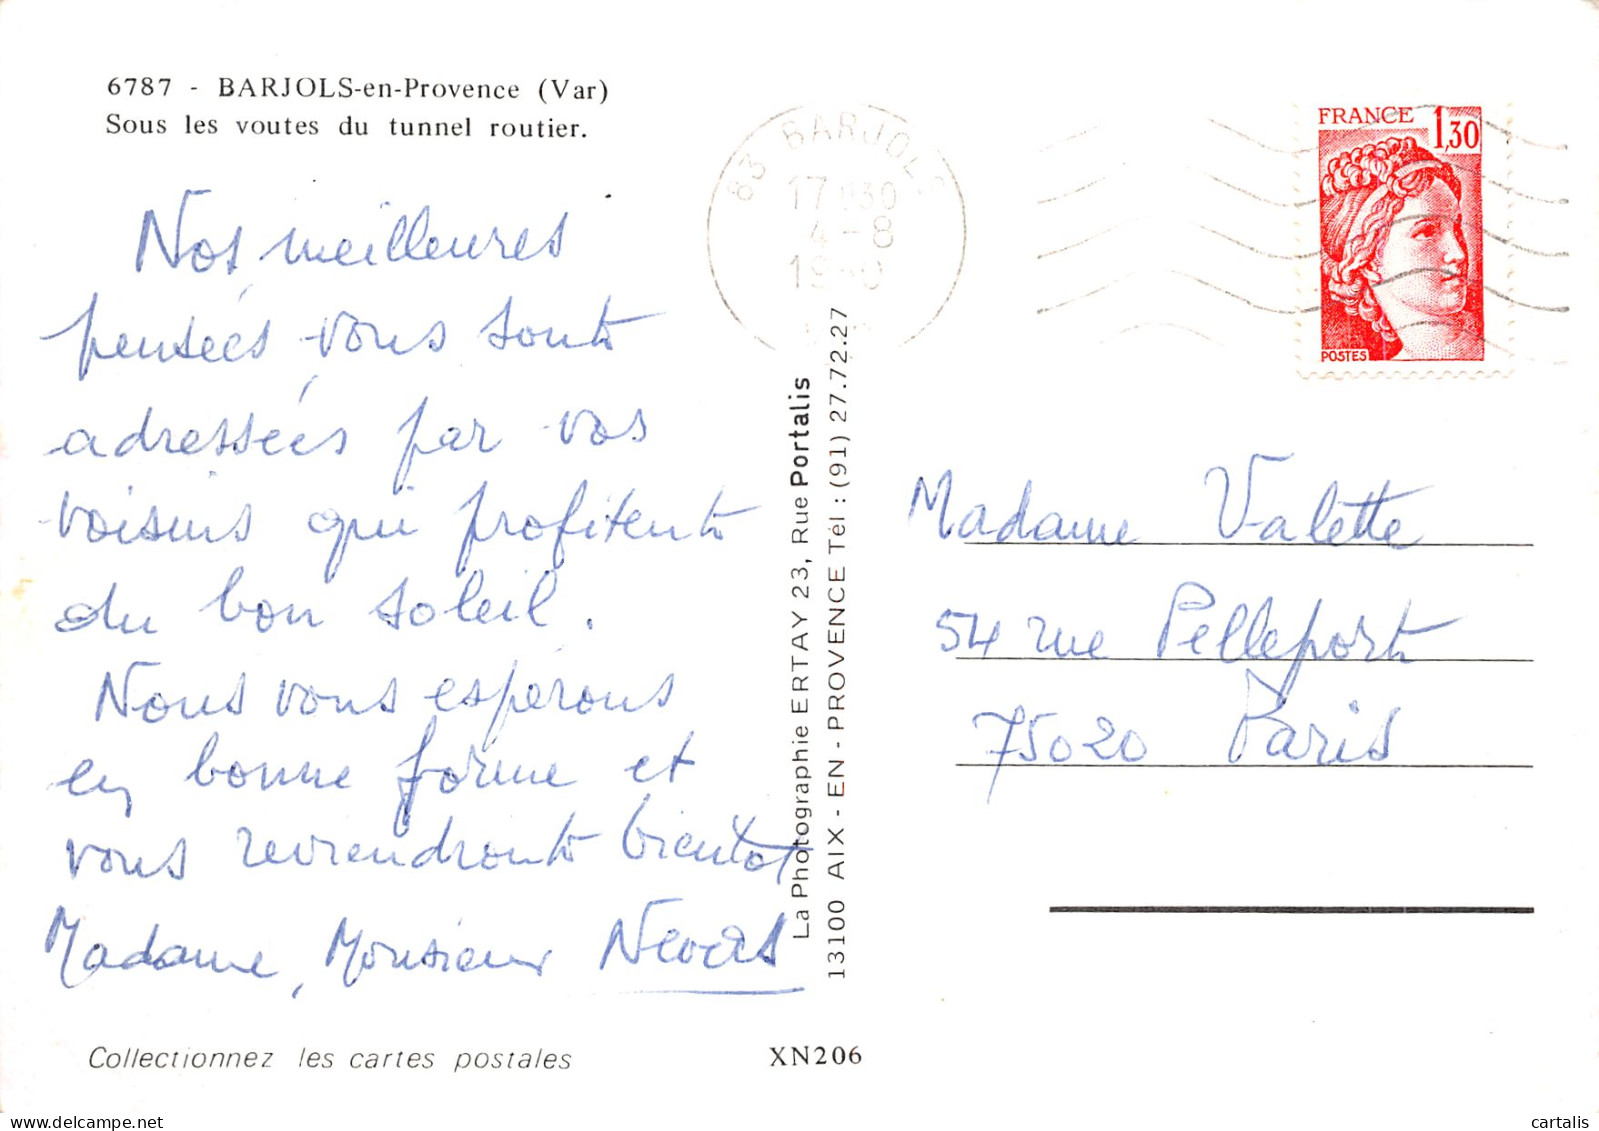 6787 - BARJOLS-en-Provence (Var)
Sous les voutes du tunnel routier.
Nos meilleures
pensées vous sont
adressées par vos
voisins qui profitent
du bon soleil.
Nous vous espérons
en bonne forme et
vous reviendront bientot
Madame, Monsieur
Collectionnez les cartes postales
La Photographie ERTAY 23, Rue Portalis
13100 AIX - EN - PROVENCE Tél : (91) 27.72.27
XN206
83 BARJOLS
17 H30
4-8
1980
FRANCE 1,30
POSTES
Madame Valette
54 rue Pelleport
75020 Paris
cartalis